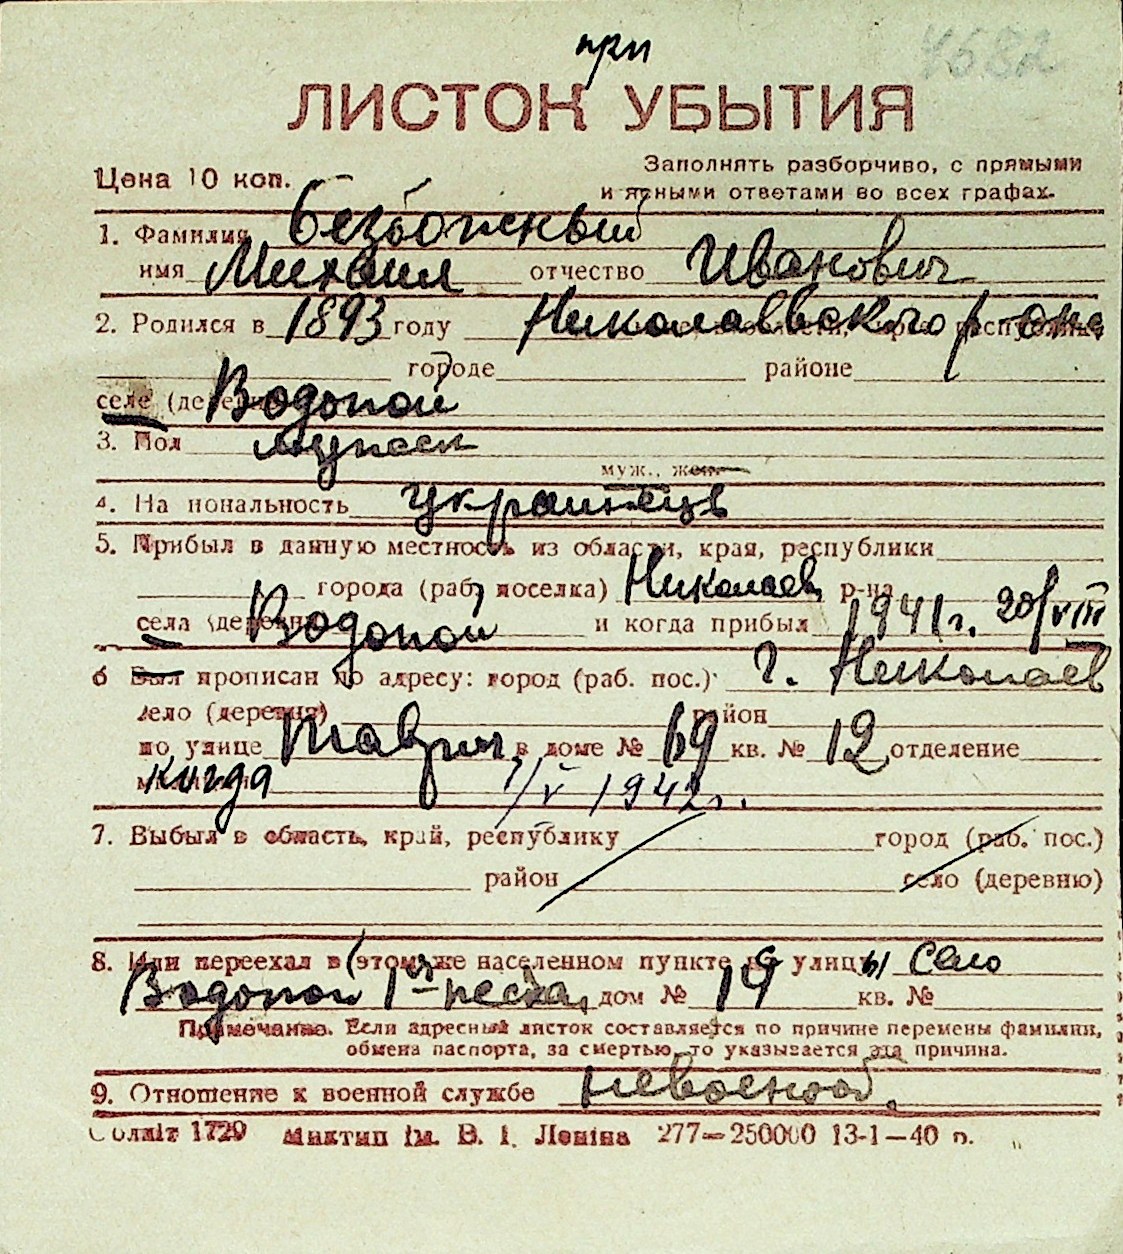 7682
при
ЛИСТОК УБЫТИЯ
Цена 10 коп.
Заполнять разборчиво, с прямыми
и ясными ответами во всех графах.
1. Фамилия Безбожный
имя Михаил отчество Иванович
2. Родился в 1893 году Николаевского р-она
городе районе
селе Водопой
3. Пол мужск
муж., жен.
4. На нональность украинець
5. Прибыл в данную местность из области, края, республики
города (раб. поселка) Николаев р-на
села (деревни) Водопой и когда прибыл 1941 г. 20/VIII
6 Был прописан по адресу: город (раб. пос.) г. Николаев
село (деревня) район
по улице Таврич. в доме № 69 кв. № 12 отделение
когда 1/V 1942 г.
7. Выбыл в область, край, республику город (раб. пос.)
район село (деревню)
8. Или переехал в этом же населенном пункте с улицы село
Водопой 1ая песча, дом № 19 кв. №
Примечание. Если адресный листок составляется по причине перемены фамилии,
обмена паспорта, за смертью, то указывается эта причина.
9. Отношение к военной службе невоенооб.
Соллiт 1729 Миктип iм. В. I. Ленiна 277—250000 13-1—40 р.